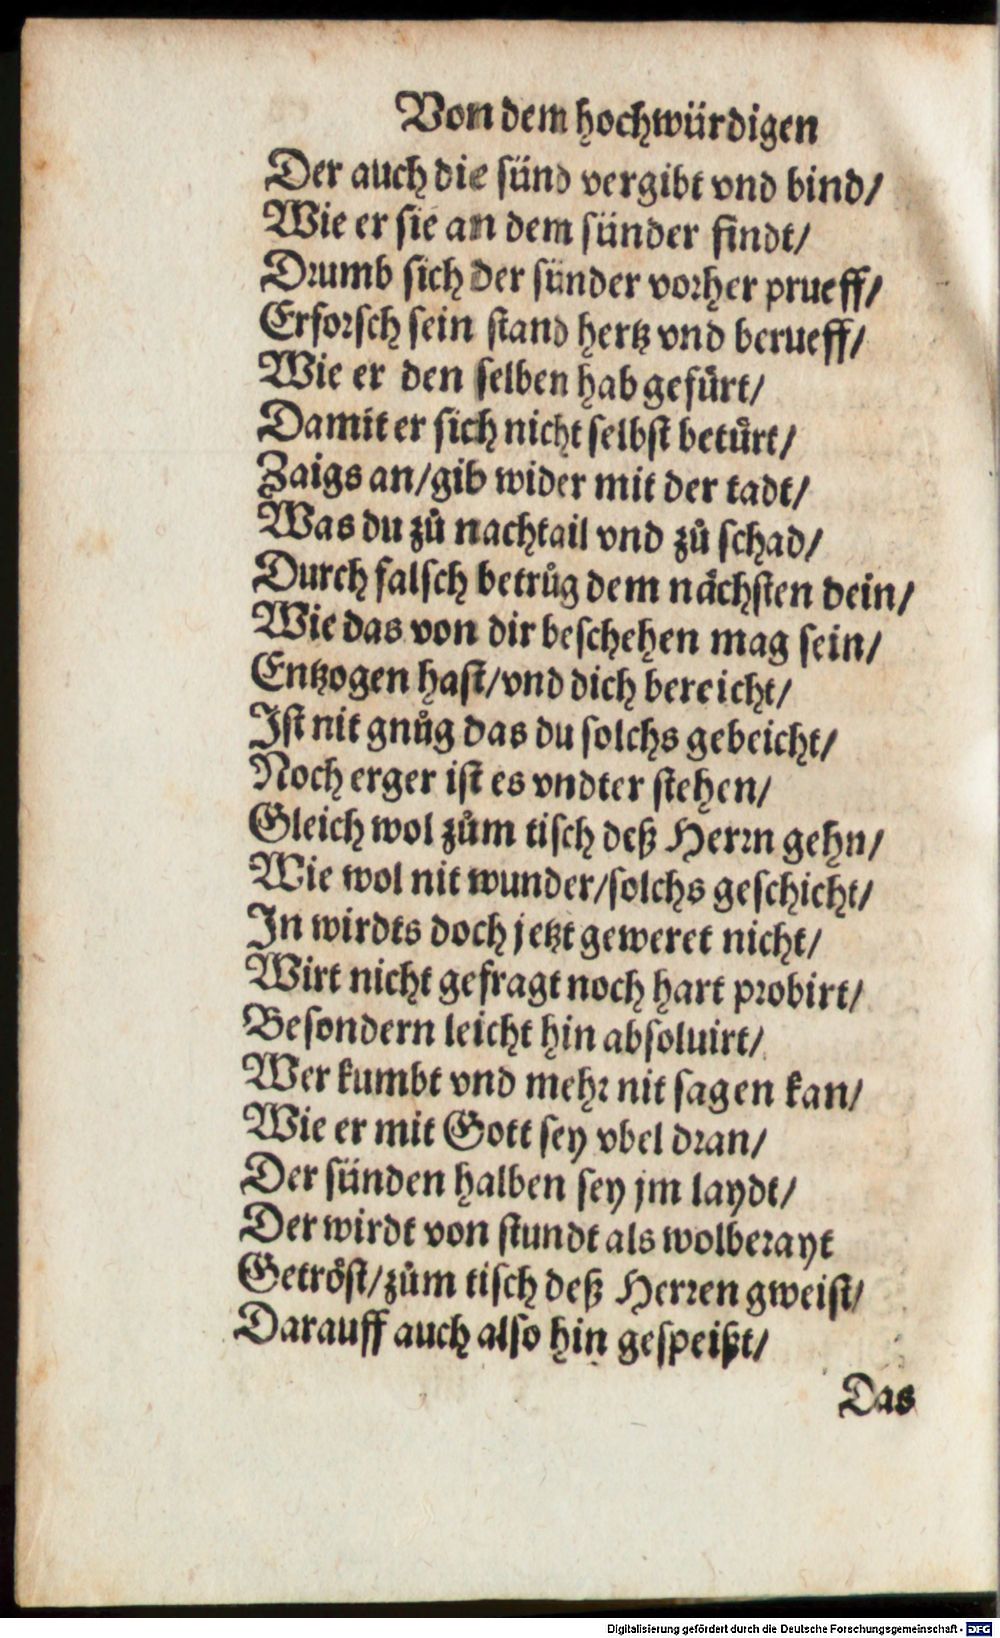 Von dem hochwürdigen
Der auch die sünd vergibt vnd bind/
Wie er sie an dem sünder findt/
Drumb sich der sünder vorher prueff/
Erforsch sein stand hertz vnd berueff/
Wie er den selben hab gefůrt/
Damit er sich nicht selbst betůrt/
Zaigs an/gib wider mit der tadt/
Was du zů nachtail vnd zů schad/
Durch falsch betrůg dem nåchsten dein/
Wie das von dir beschehen mag sein/
Entzogen hast/vnd dich bereicht/
Ist nit gnůg das du solchs gebeicht/
Noch erger ist es vndter stehen/
Gleich wol zům tisch deß Herrn gehn/
Wie wol nit wunder/solchs geschicht/
In wirdts doch jetzt geweret nicht/
Wirt nicht gefragt noch hart probirt/
Besondern leicht hin absoluirt/
Wer kumbt vnd mehr nit sagen kan/
Wie er mit Gott sey vbel dran/
Der sünden halben sey jm laydt/
Der wirdt von stundt als wolberayt
Getröst/zům tisch deß Herren gweist/
Darauff auch also hin gespeißt/
Das
Digitalisierung gefördert durch die Deutsche Forschungsgemeinschaft - DFG